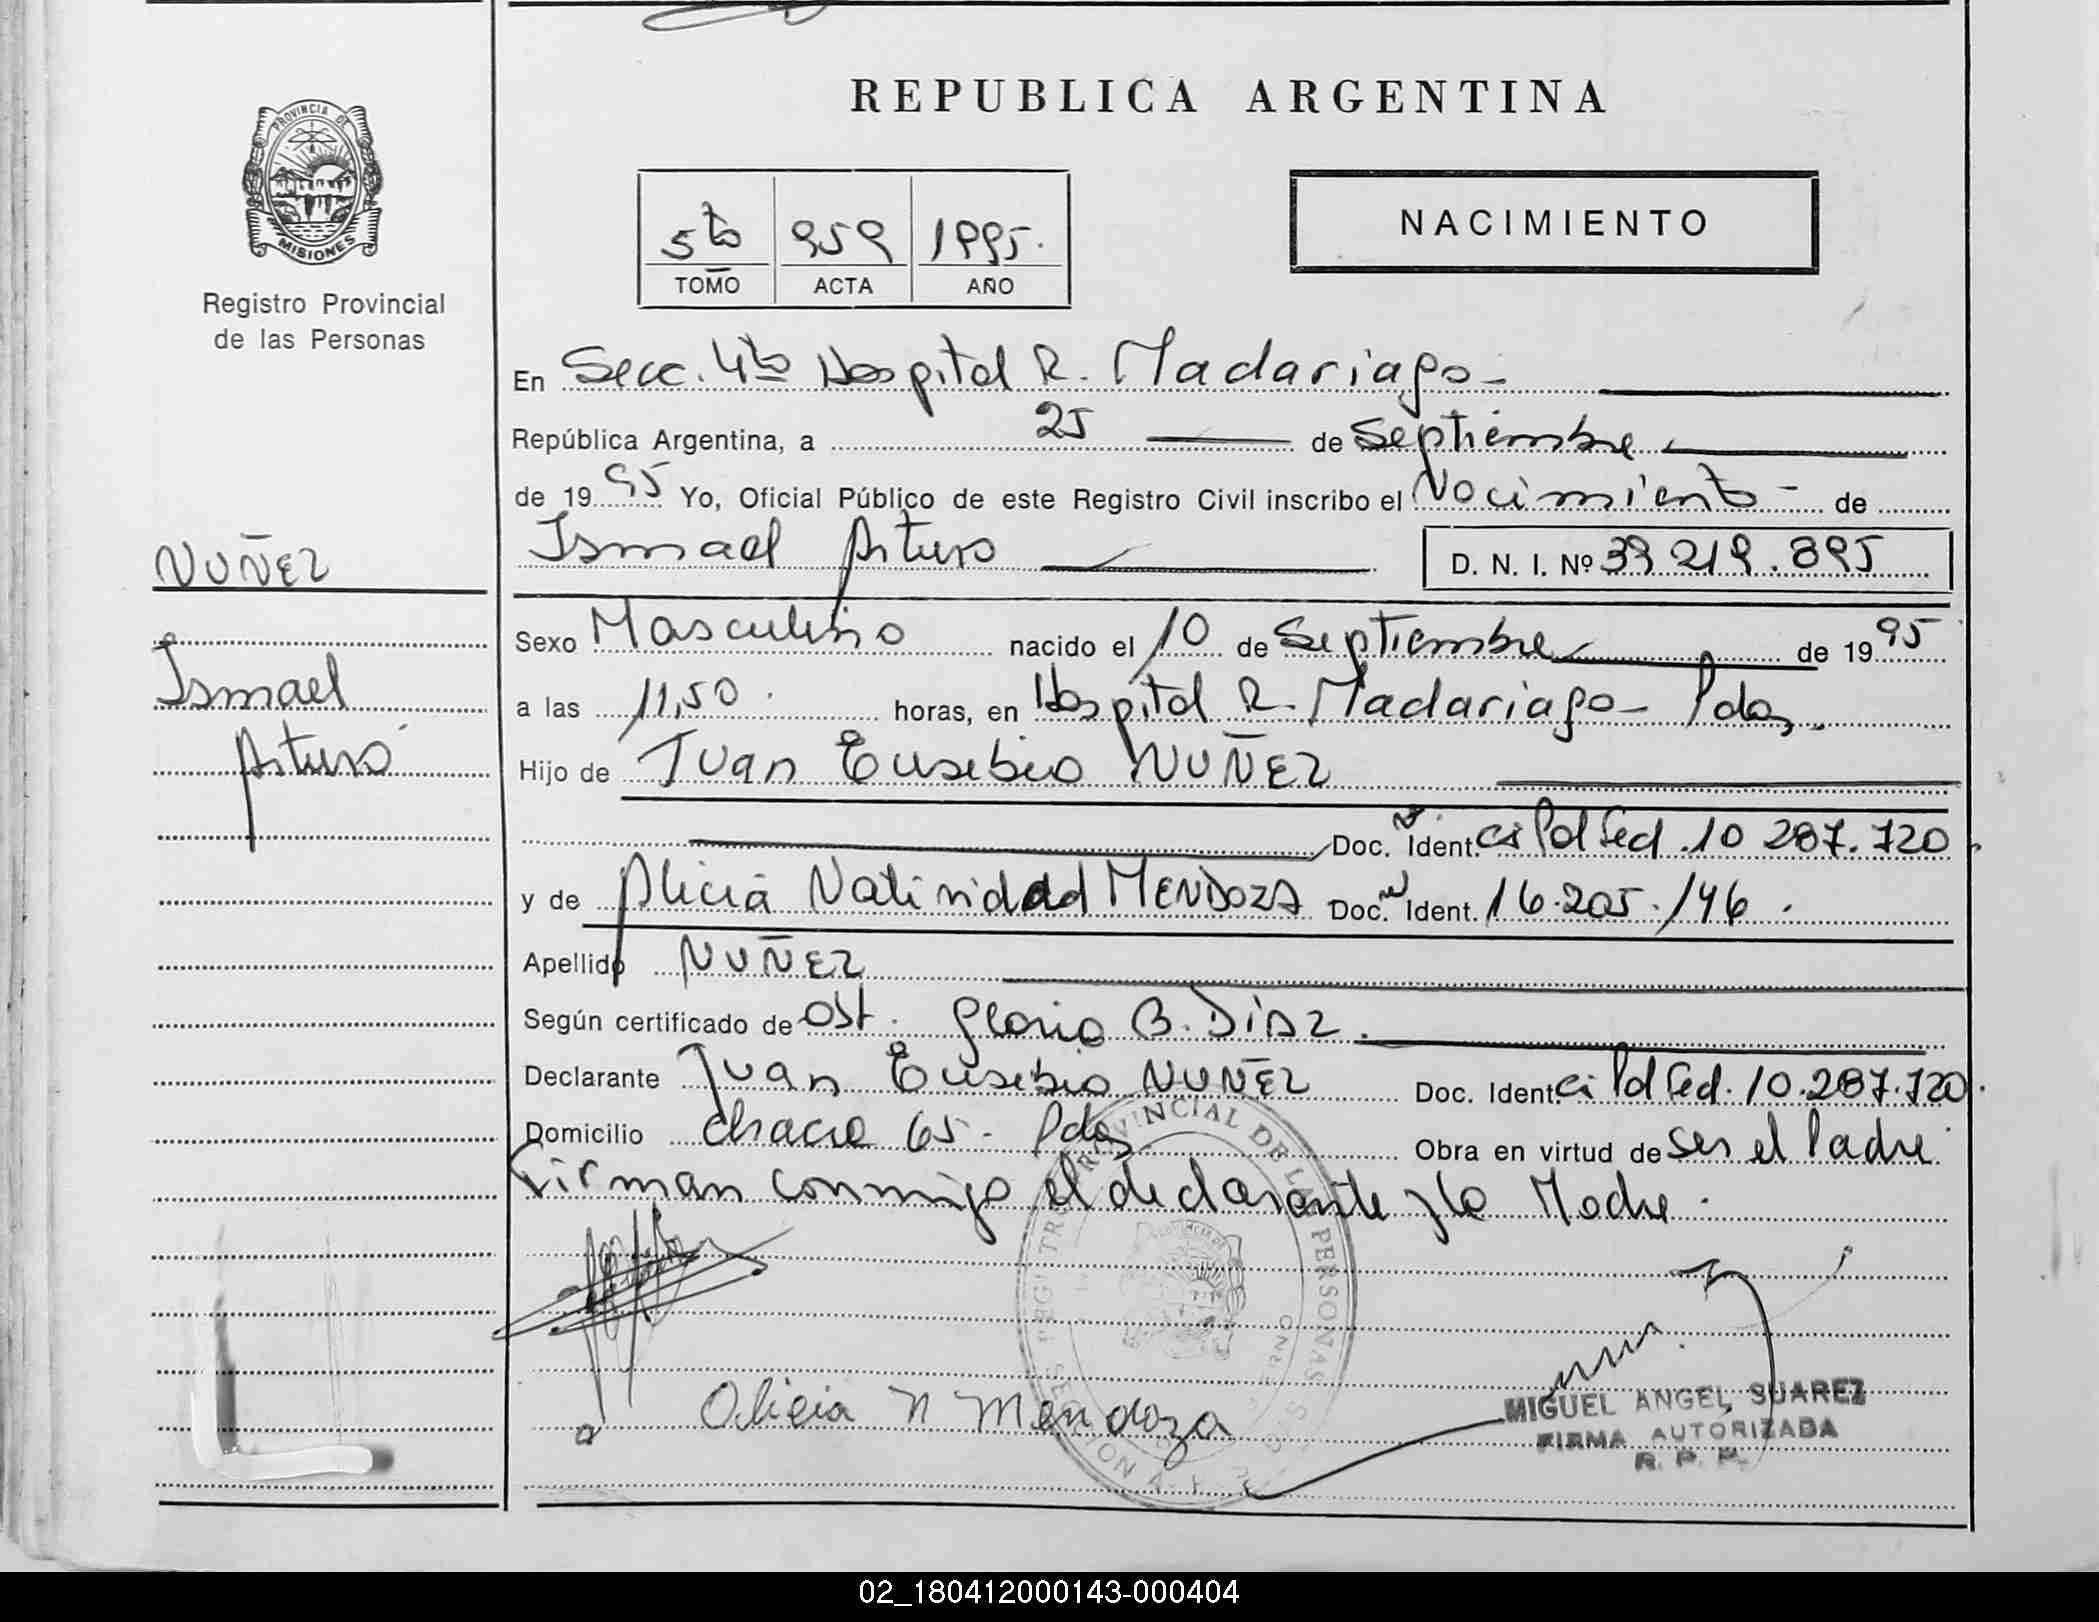 REPUBLICA ARGENTINA
PROVINCIA DE
MISIONES
Registro Provincial
de las Personas
5to 959 1995.
TOMO ACTA AÑO
NACIMIENTO
En Secc. 4to Hospital R. Madariaga -
República Argentina, a 25 de Septiembre
de 1995 Yo, Oficial Público de este Registro Civil inscribo el Nacimiento - de
NUÑEZ
Ismael Arturo
D. N. I. Nº 39.219.895
Sexo Masculino nacido el 10 de Septiembre de 1995
Ismael
a las 11,50. horas, en Hospital R. Madariaga - Pdas.
Arturo
Hijo de Juan Eusebio NUÑEZ
Doc. Ident. Ci Pol Fed. 10 287.720.
y de Alicia Natividad MENDOZA Doc. Ident. 16.205.146.
Apellido NUÑEZ
Según certificado de Ost. Gloria B. Diaz.
Declarante Juan Eusebio NUÑEZ Doc. Ident. Ci Pol Fed. 10.287.720.
Domicilio Chaco 65 - Pdas Obra en virtud de ser el Padre
Firman conmigo el declarante y la Madre.
REGISTRO PROVINCIAL DE LAS PERSONAS
Alicia N Mendoza
MIGUEL ANGEL SUAREZ
FIRMA AUTORIZADA
R. P. P.
02_180412000143-000404